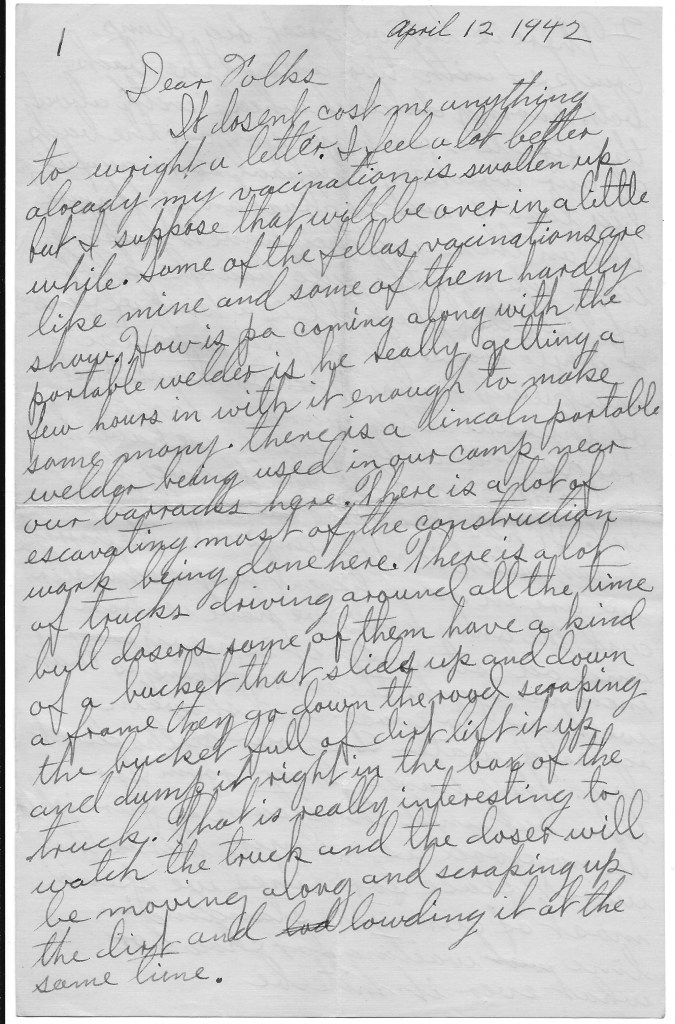 1
April 12 1942
Dear Folks
It dosent cost me anything
to wright a letter. I feel a lot better
already my vacination is swollen up
but I suppose that will be over in a little
while. Some of the fellas vacinations are
like mine and some of them hardly
show. How is pa coming along with the
portable welder is he really getting a
few hours in with it enough to make
some mony. there is a lincoln portable
welder being used in our camp near
our barracks here. There is a lot of
escavating most of the construction
work being done here. There is a lot
of trucks driving around all the time
bull dosers some of them have a kind
of a bucket that slids up and down
a frame they go down the road scraping
the bucket full of dirt lift it up
and dump it right in the box of the
truck. That is really interesting to
watch the truck and the doser will
be moving along and scraping up
the dirt and lod lowding it at the
same time.